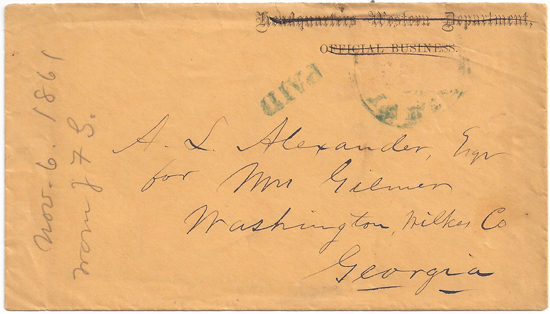 Headquarters Western Department.
OFFICIAL BUSINESS.
PAID
A. L. Alexander, Esqr
for Mrs Gilmer
Washington, Wilkes Co
Georgia
Nov. 6. 1861